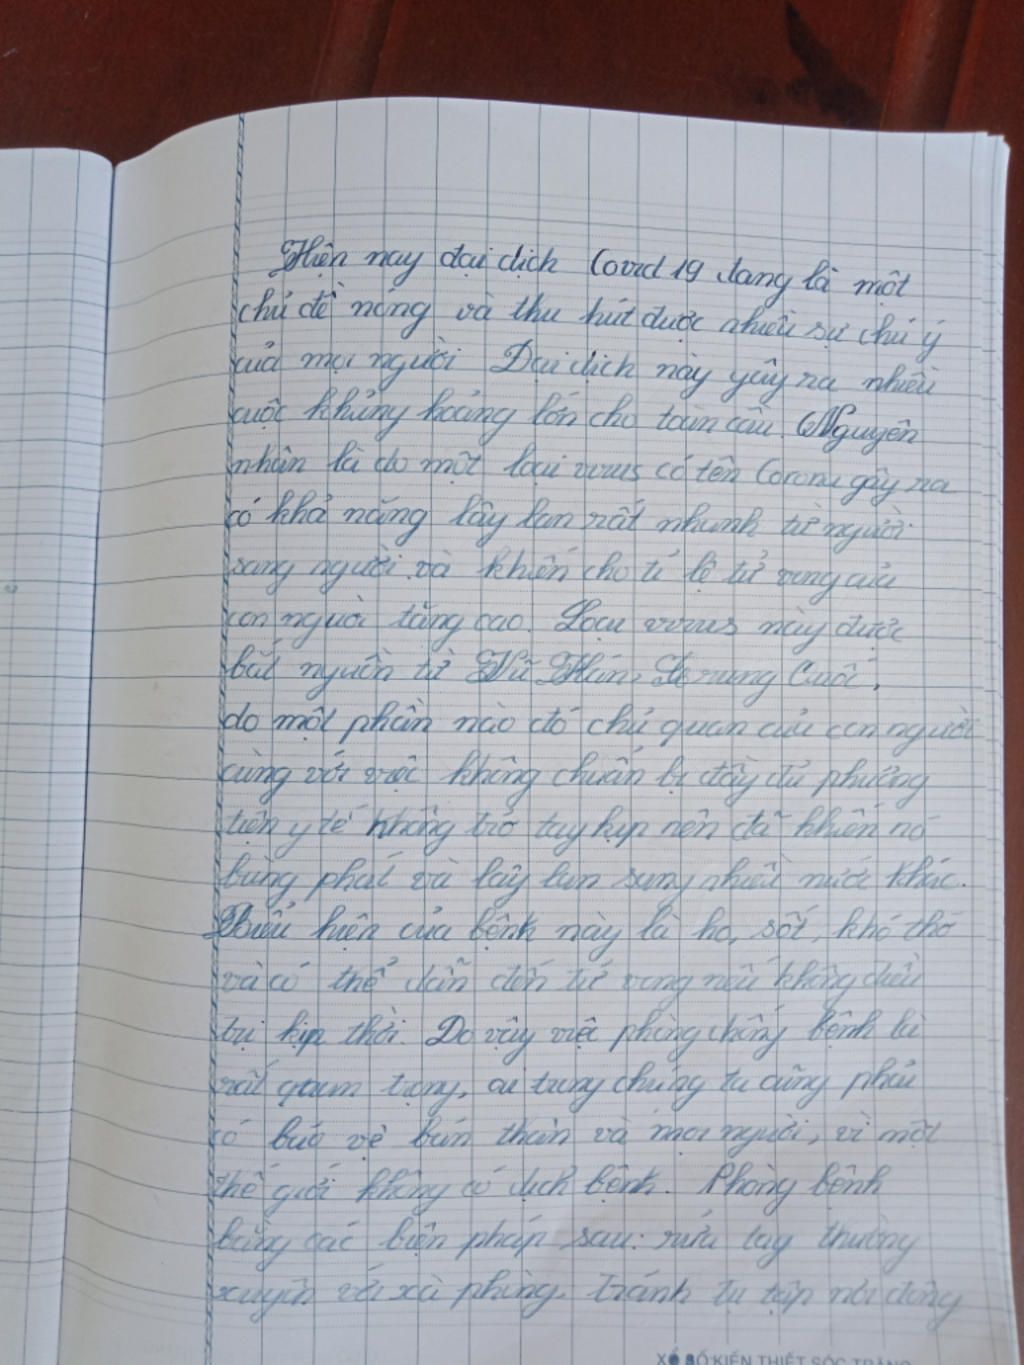 Hiện nay đại dịch Covid 19 đang là một
chủ đề nóng và thu hút được nhiều sự chú ý
của mọi người Đại dịch này gây ra nhiều
cuộc khủng hoảng lớn cho toàn cầu. Nguyên
nhân là do một loại virus có tên Corona gây ra
có khả năng lây lan rất nhanh từ người
sang người và khiến cho tỉ lệ tử vong của
con người tăng cao. Loại virus này được
bắt nguồn từ Vũ Hán, Trung Cuối,
do một phần nào đó chủ quan của con người
cùng với việc không chuẩn bị đầy đủ phương
tiện y tế không trở tay kịp nên đã khiến nó
bùng phát và lây lan sang nhiều nước khác.
Biểu hiện của bệnh này là ho, sốt, khó thở
và có thể dẫn đến tử vong nếu không điều
trị kịp thời. Do vậy việc phòng chống bệnh là
rất quam trọng, ai trong chúng ta cũng phải
có bảo vệ bản thân và mọi người, vì một
thế giới không có dịch bệnh. Phòng bệnh
bằng các biện pháp sau: rửa tay thường
xuyên với xà phòng. tránh tụ tập nơi đông
XỔ SỐ KIẾN THIẾT SÓC TRĂNG